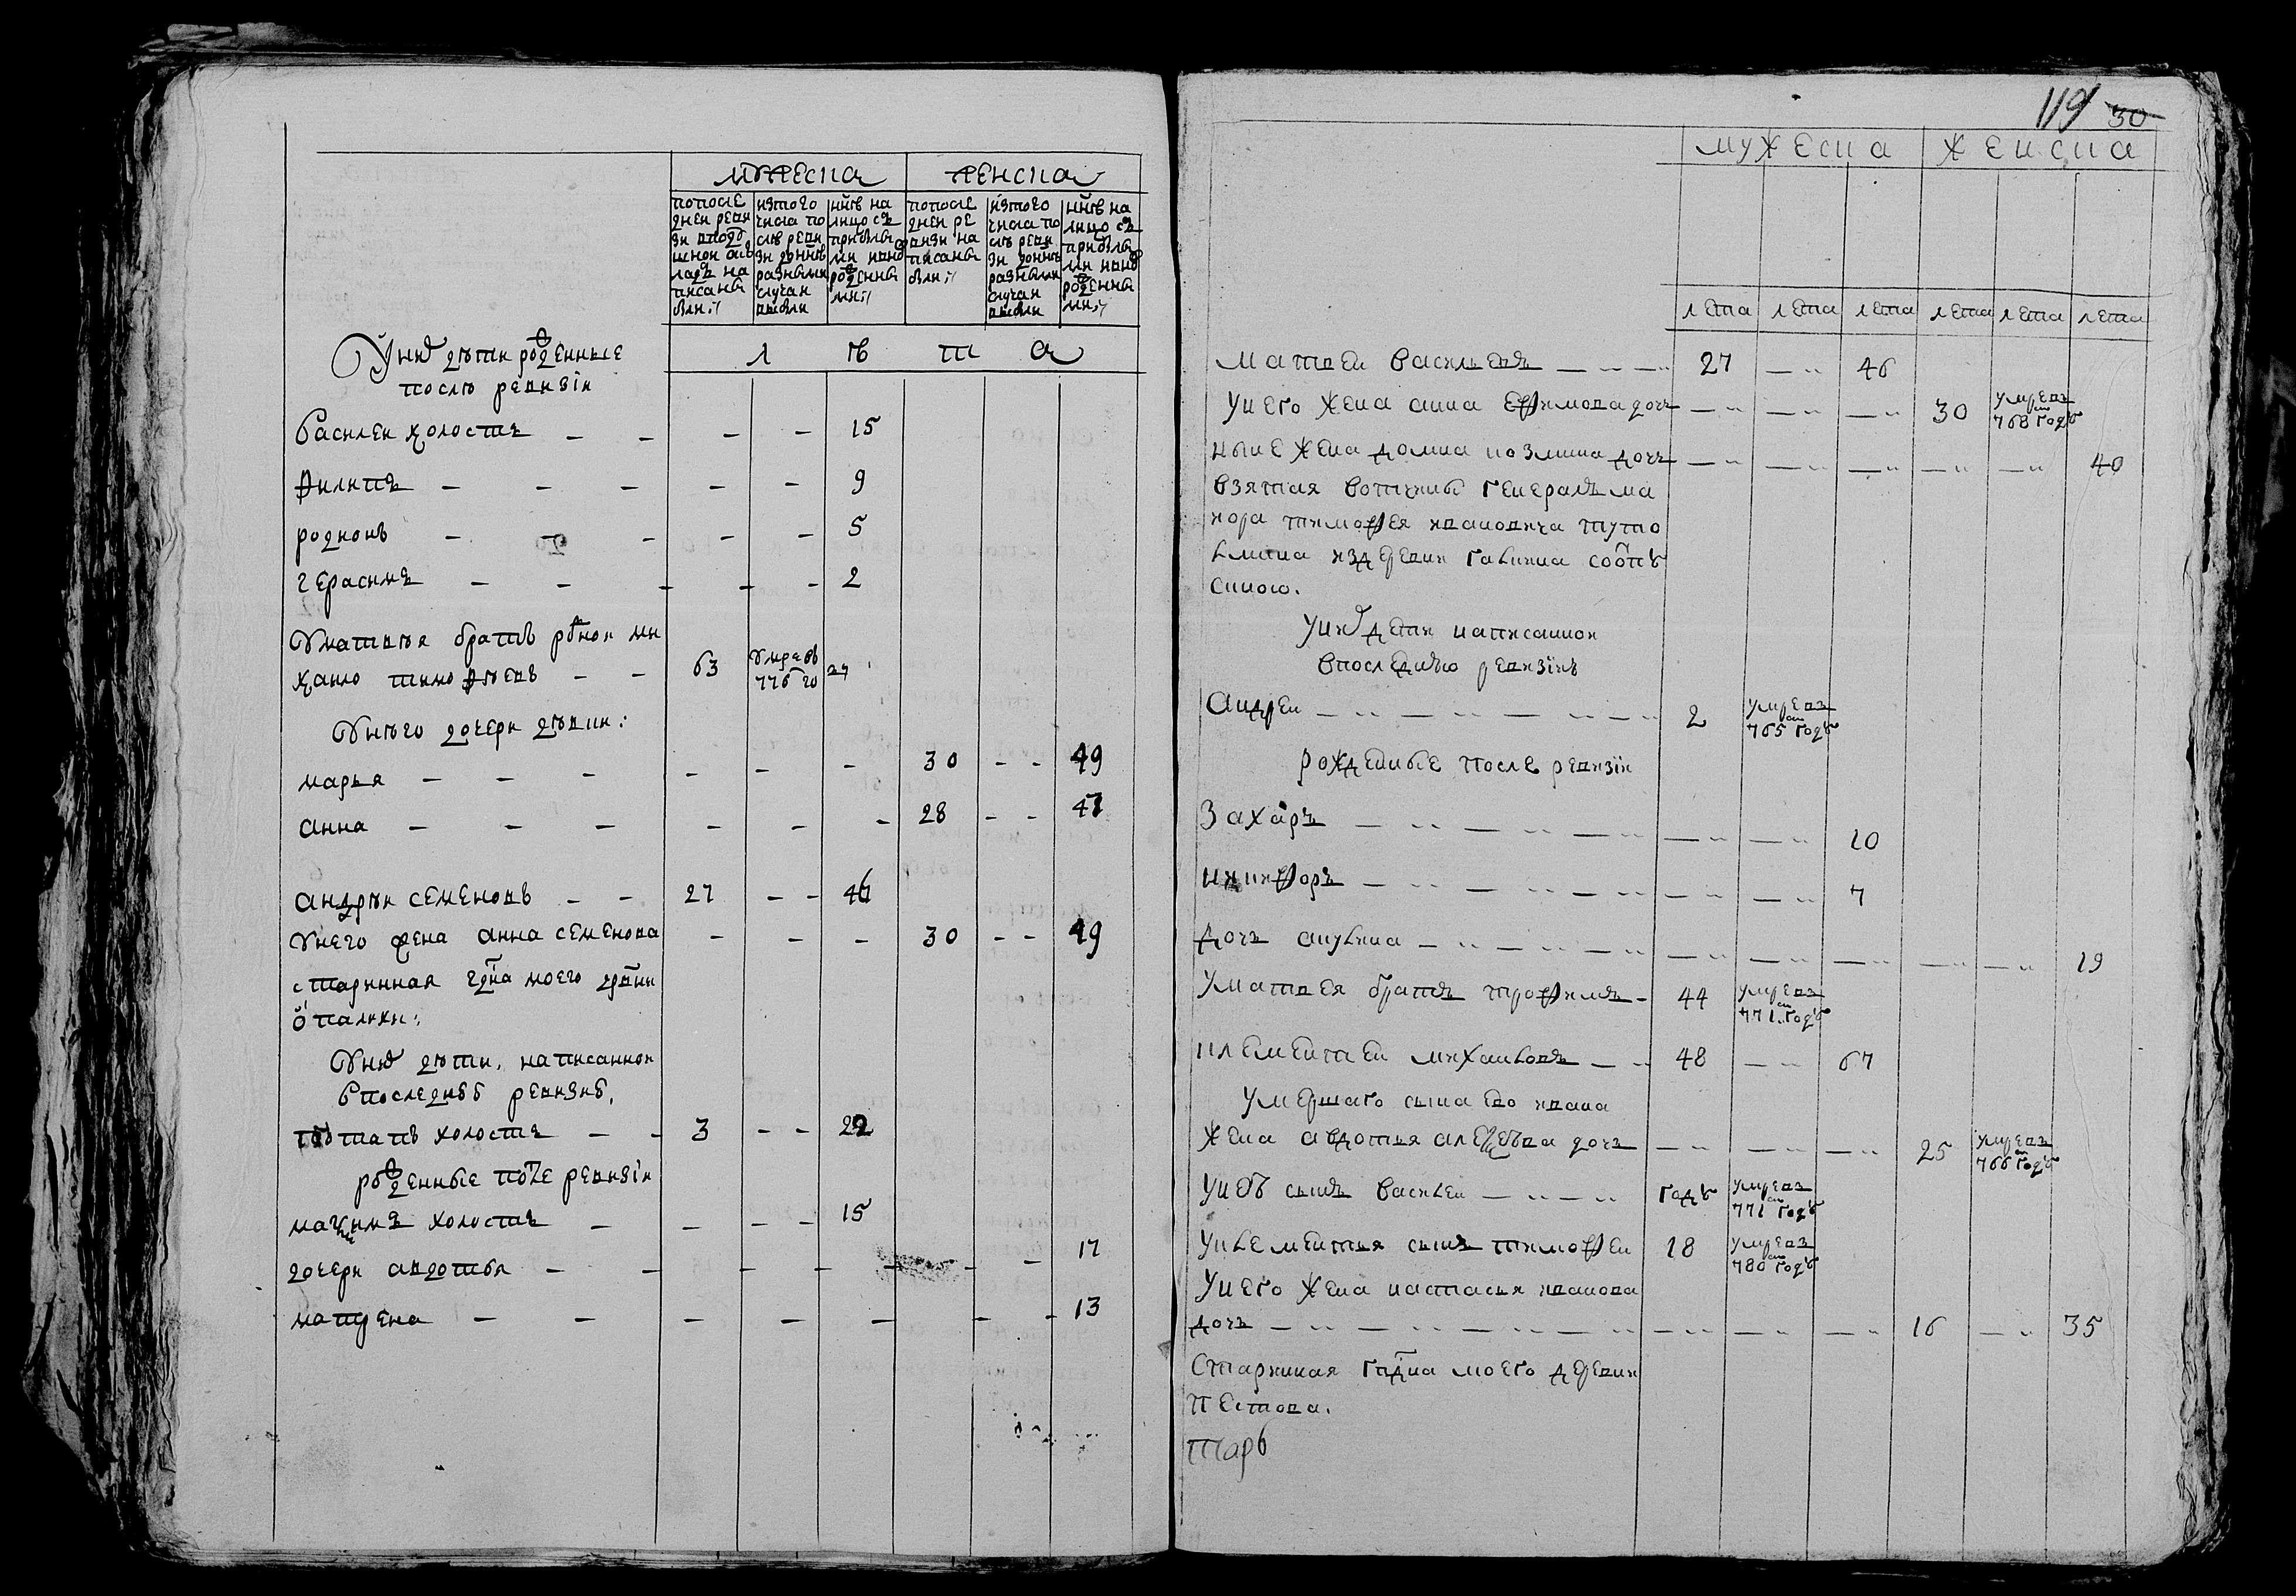 мужеска женска
попосле
дней реви
зи в подѹ
шном окъ
ладѣ на
писаны
были
изтого
числа по
слѣ реви
зи до ннѣ
разными
случаи
выбыли
ннѣ на
лицо съ
прибылы
ми и внѡ
рожденны
ми
попосле
дней ре
визи на
писаны
были
изтого
числа по
слѣ реви
зи до ннѣ
разными
случаи
выбыли
ннѣ на
лицо съ
прибылы
ми и внѡ
рожденны
ми
л ѣ т а
У них дѣти рожденные
послѣ ревизіи
Василеи холостъ — — — — 15
Филипъ — — — — — 9
родионъ — — — — — 5
герасимъ — — — — — 2
У матвѣя братъ рѡнои ми
хаило тимофѣевъ — — 63 умре въ 776 го
У нѣго дочери дѣвки:
марья — — — — — — 30 — — 49
анна — — — — — — 28 — — 47
андрѣи семеновъ — — 27 — — 46
У него жена анна семенова — — — 30 — — 49
старинная гдна моего дрвни
опалики:
У них дѣти, написаннои
в последнѣѣ ревизиѣ,
потапъ холостъ — — 3 — — 22
рожденные после ревизіи
махимъ холостъ — — — — 15
дочери авдотья — — — — — — — 17
матрена — — — — — — — 13
119 30
мужеска женска
лета лета лета лета лета лета
Матвеи Васильевъ — — 27 — 46
У него жена анна ефимова дочь — — — 30 умре въ 768 годѣ
ныне жена домна козмина дочь — — — — — 40
взятая вотчины генералъ ма
иора тимофея ивановича туто
лмина из деревни галкина со отпѣ
скною.
У них дети написаннои
в последнѣю ревизїю
Андреи — — — — 2 умре въ 765 годѣ
рожденные после ревизіи
Захаръ — — — — — — 10
никифоръ — — — — — — 7
дочь акулина — — — — — — — — 19
У матвея братъ трофимъ — 44 умре въ 771 годѣ
клементеи михаиловъ — 48 — 67
умершаго сына ево ивана
жена авдотья алеѯѣева дочь — — — 25 умре въ 766 годѣ
У них сынъ василеи — — годѣ умре въ 771 годѣ
У клементья сынъ тимофеи 18 умре въ 780 годѣ
У него жена настасья иванова
дочь — — — — — — — 16 — 35
Старинная гпдна моего деревни
пестова.
тарв